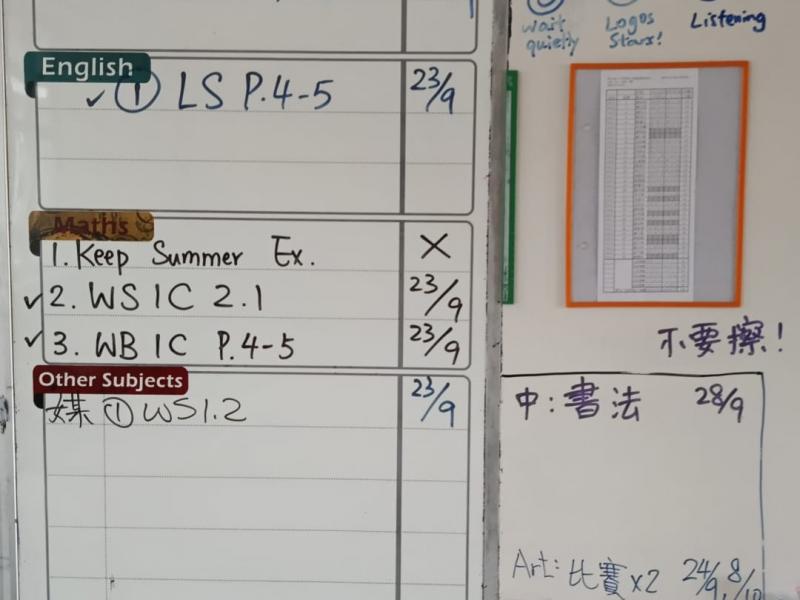 English
✓ ① LS P.4-5 23/9
Maths
1. Keep Summer Ex. ×
✓ 2. WS 1C 2.1 23/9
✓ 3. WB 1C P.4-5 23/9
Other Subjects
媒 ① WS1.2 23/9
Wait quietly
Logos Stars!
Listening
不要擦!
中: 書法 28/9
Art: 比賽 x2 24/9, 8/10